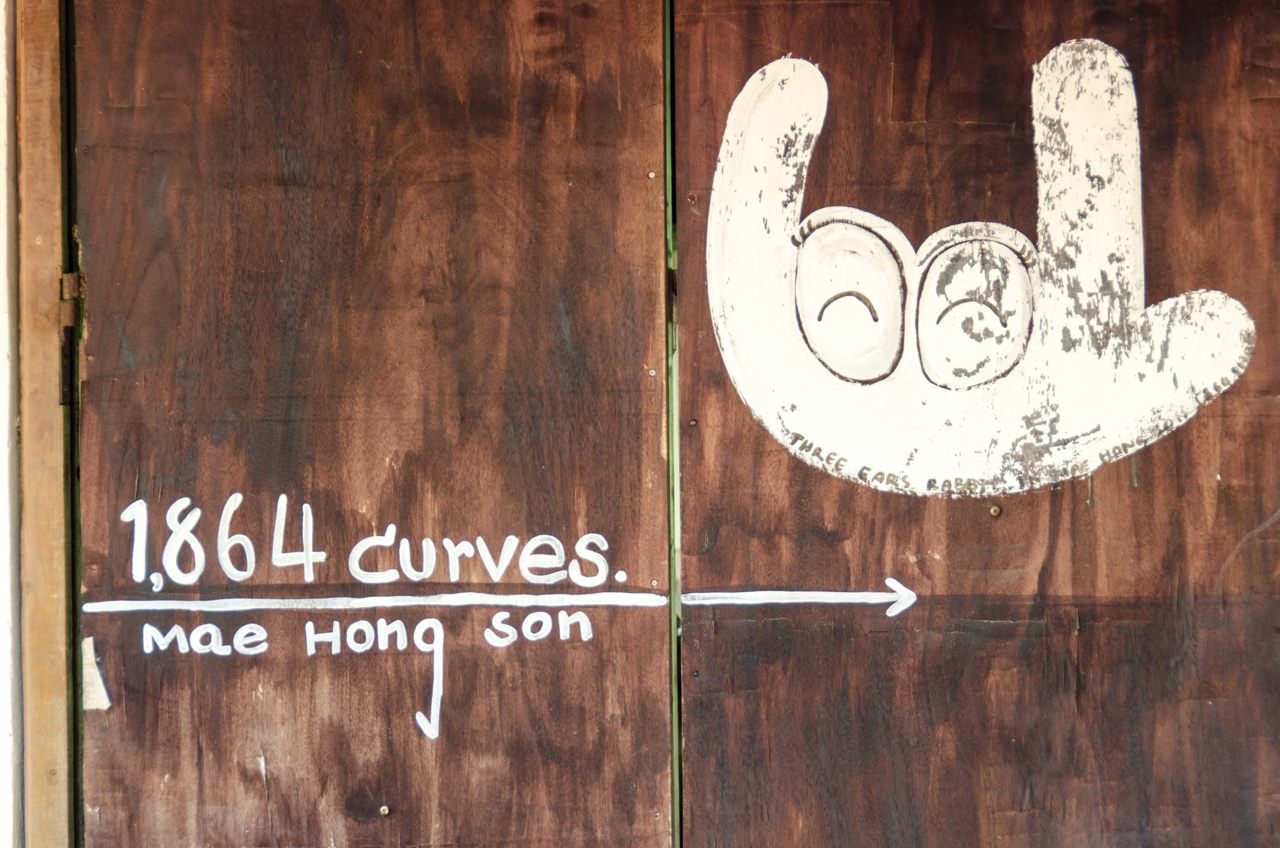 1,864 curves.
Mae Hong son
THREE EARS RABBIT IN MAE HONG